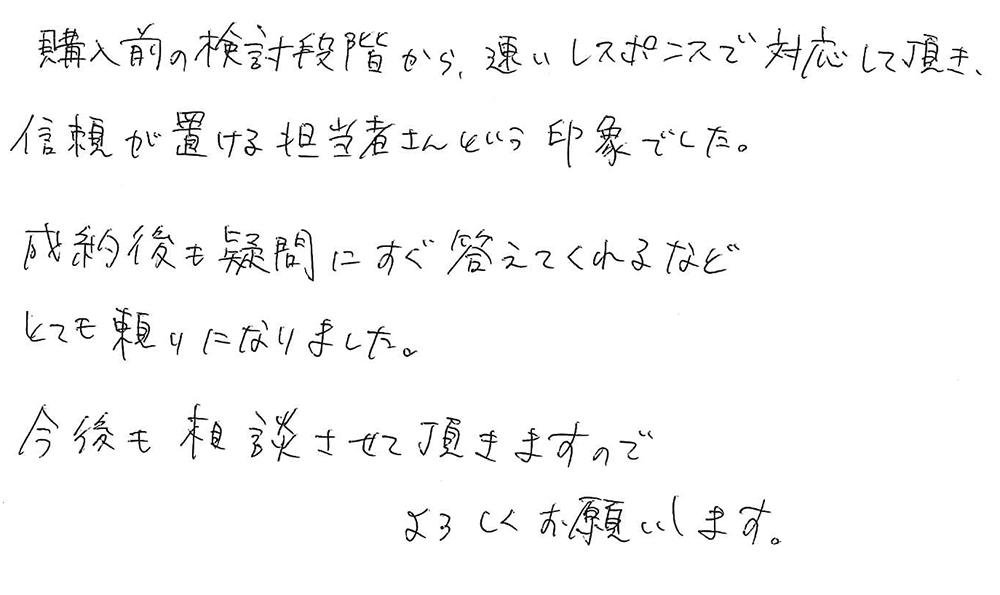 購入前の検討段階から、速いレスポンスで対応して頂き、
信頼が置ける担当者さんという印象でした。
成約後も疑問にすぐ答えてくれるなど
とても頼りになりました。
今後も相談させて頂きますので
よろしくお願いします。